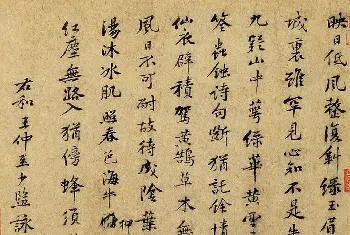 映日低風整復斜綠玉眉
城裏雖罕見心知不是牛
九疑山中萼綠華黃雲
筌蟲蝕詩句斷猶託餘情
仙衣襞積駕黃鵠草木無
風日不可耐故待成陰葉
湯沐冰肌照春色海牛押
紅塵無路入猶傍蜂須
右和王仲至少監詠